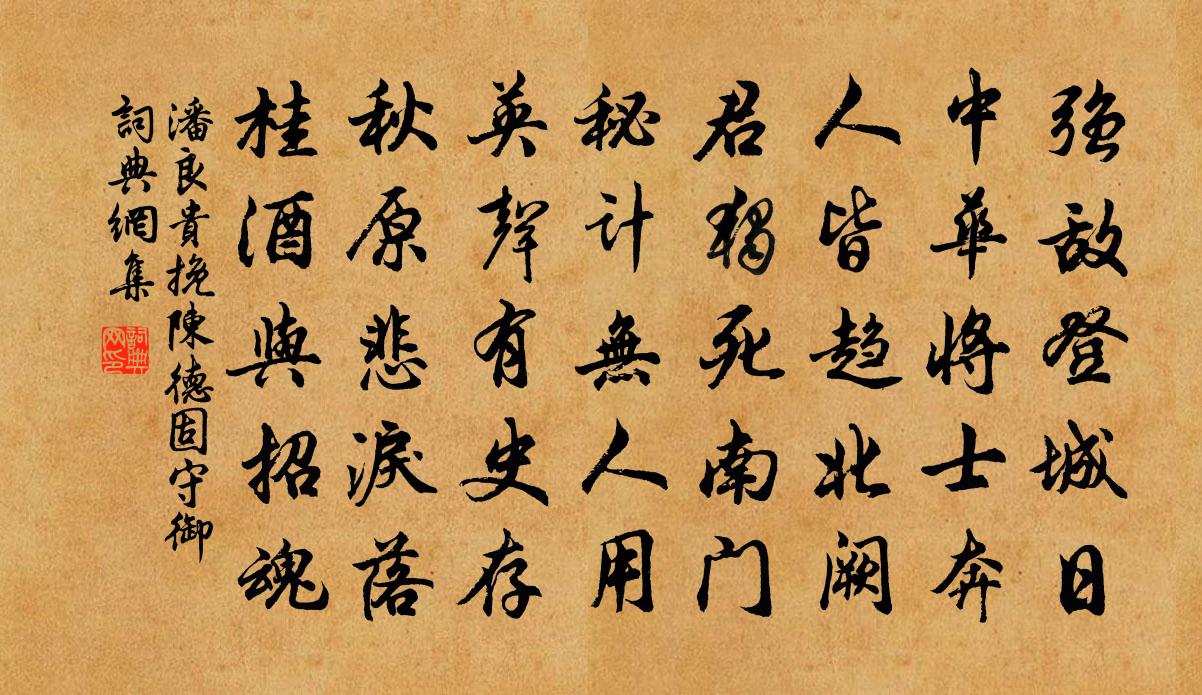 强敌登城日
中華將士奔
人皆趋北阙
君獨死南门
秘计無人用
英聲有史存
秋原悲淚落
桂酒與招魂
潘良貴挽陳德固守御
詞典網集
詞典网印